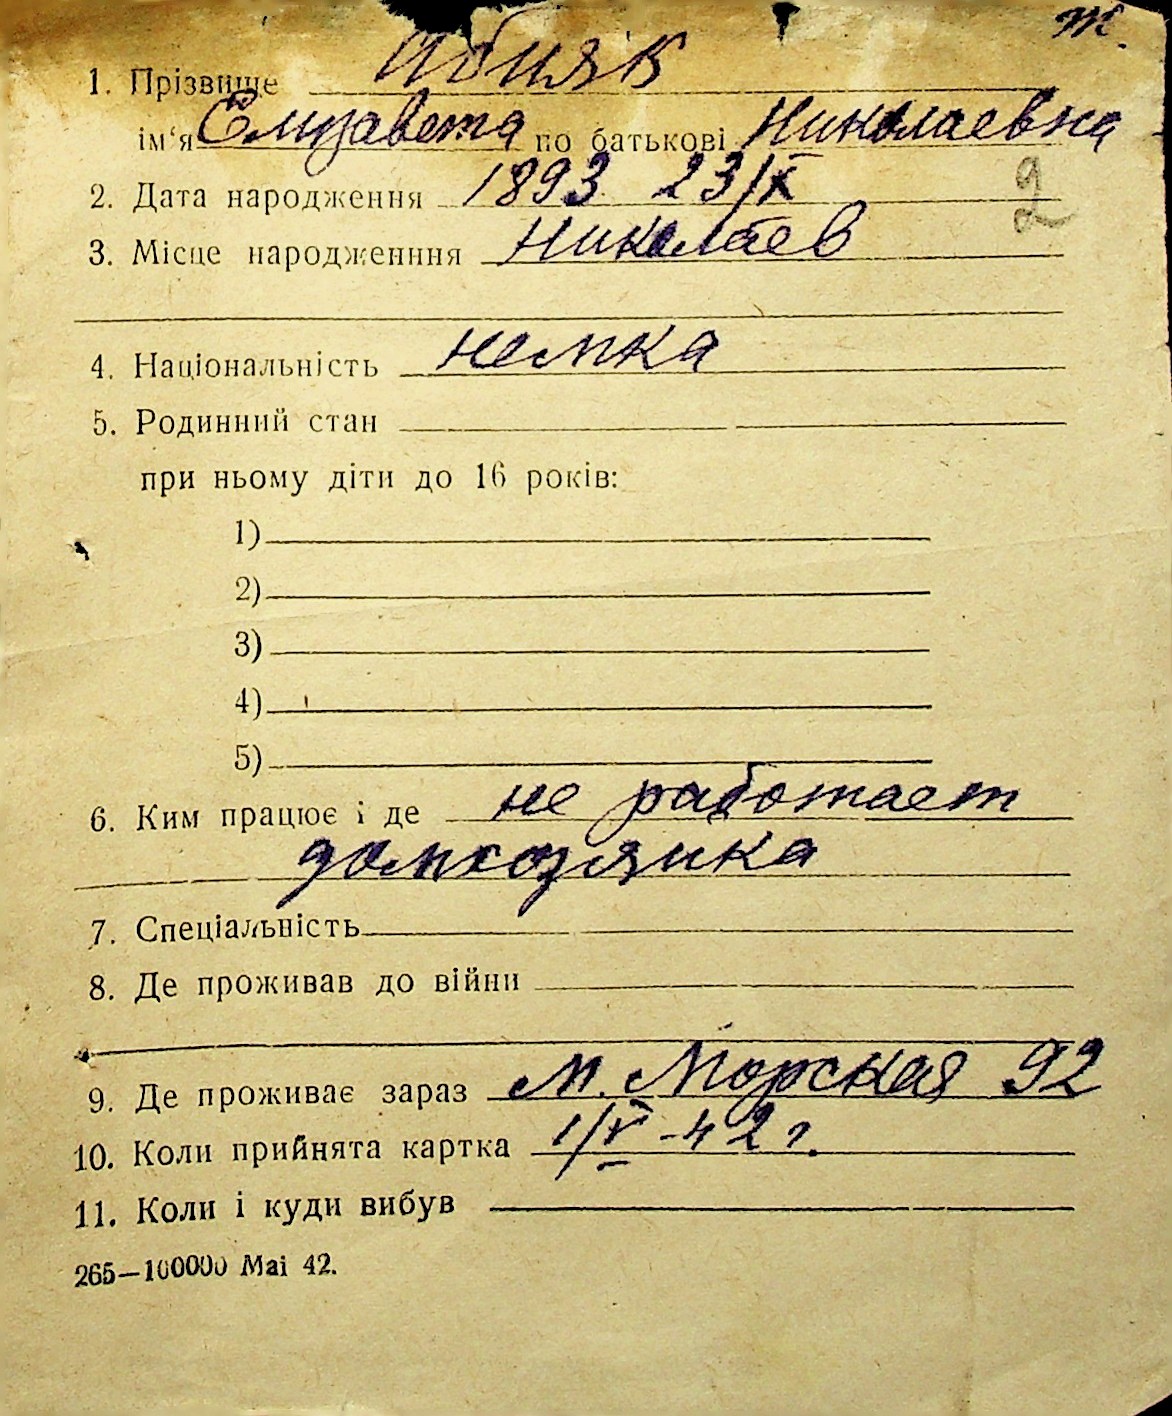 ж.
1. Прізвище
ім‘я Елизавета по батькові Николаевна
2. Дата народження 1893 23/X
2
3. Місце народженння Николаев
4. Національність немка
5. Родинний стан
при ньому діти до 16 років:
1)
2)
3)
4)
5)
6. Ким працює і де не работает
домхозяйка
7. Спеціальність
8. Де проживав до війни
9. Де проживає зараз М. Морская 92
10. Коли прийнята картка 1/V-42 г.
11. Коли і куди вибув
265—100000 Mai 42.